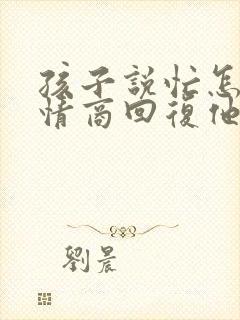 孩子説忙怎
情商回復他
劉晨